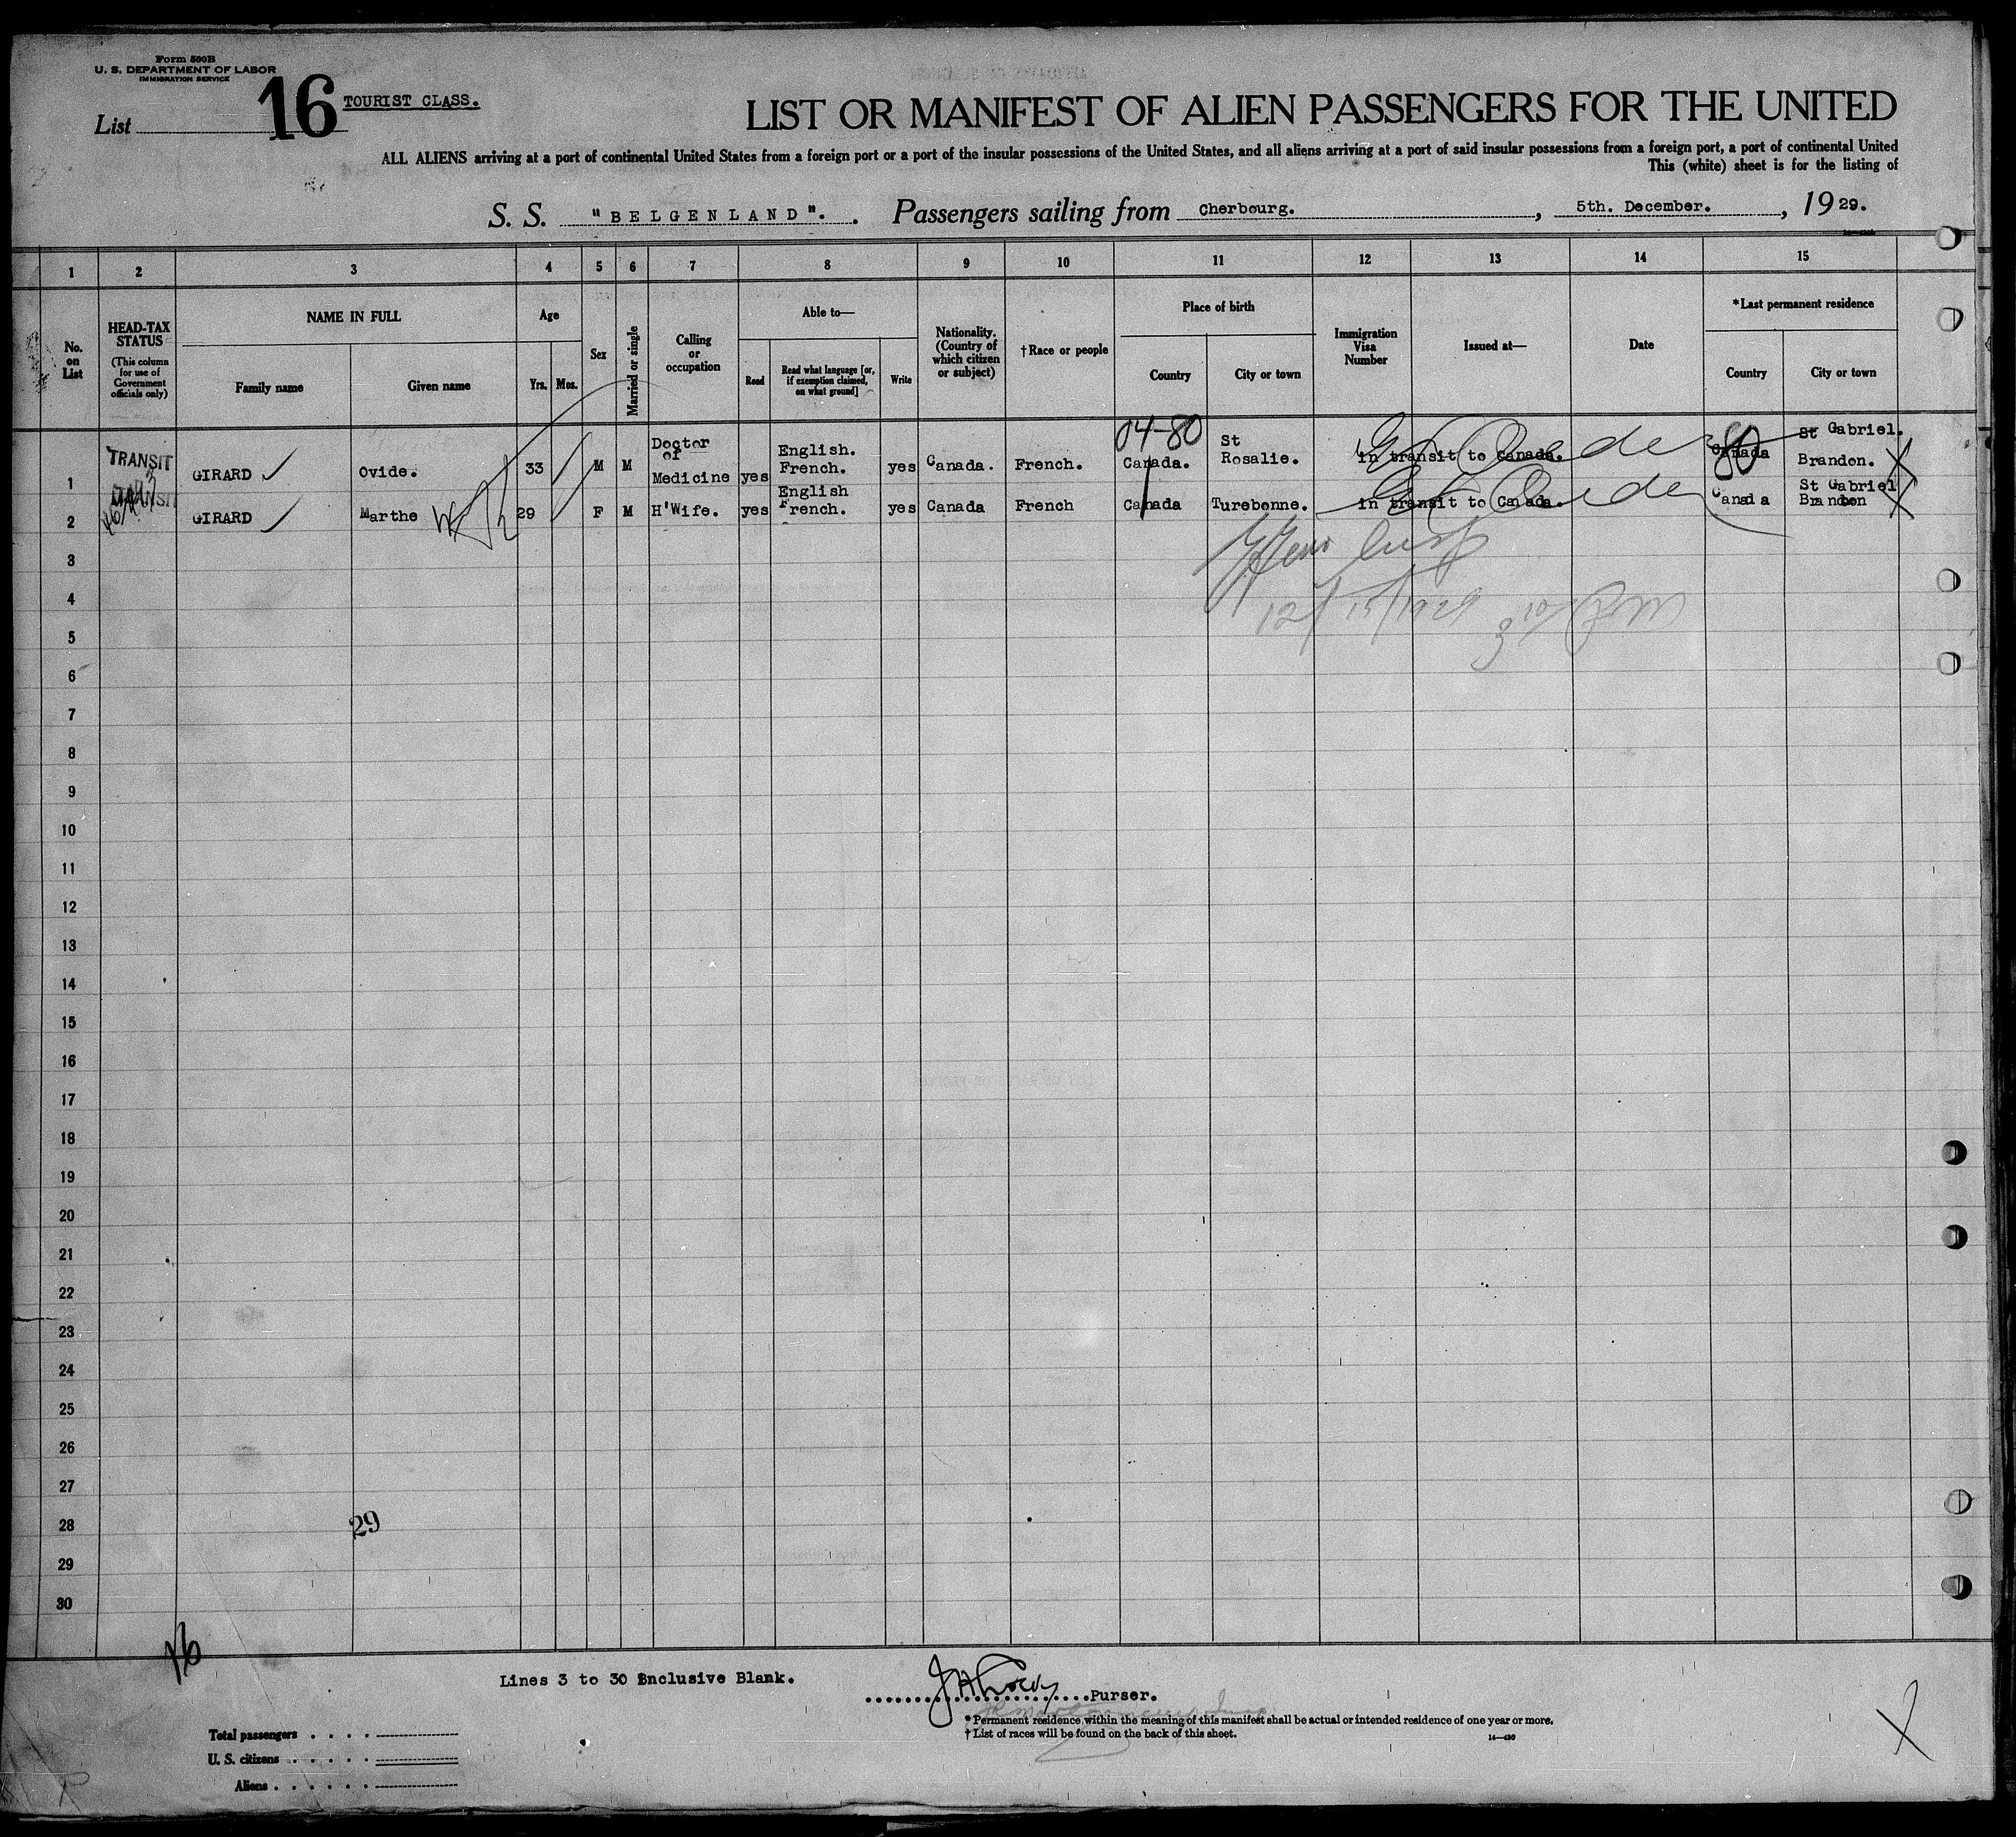 Form 500B
U. S. DEPARTMENT OF LABOR
IMMIGRATION SERVICE
List 16 TOURIST CLASS.
LIST OR MANIFEST OF ALIEN PASSENGERS FOR THE UNITED
ALL ALIENS arriving at a port of continental United States from a foreign port or a port of the insular possessions of the United States, and all aliens arriving at a port of said insular possessions from a foreign port, a port of continental United
This (white) sheet is for the listing of
S. S. "BELGENLAND". Passengers sailing from Cherbourg. , 5th. December. , 1929.
1 2 3 4 5 6 7 8 9 10 11 12 13 14 15
No. on List
HEAD-TAX STATUS
(This column for use of Government officials only)
NAME IN FULL
Family name Given name
Age
Yrs. Mos.
Sex
Married or single
Calling or occupation
Able to—
Read
Read what language [or, if exemption claimed, on what ground]
Write
Nationality. (Country of which citizen or subject)
†Race or people
Place of birth
Country City or town
Immigration Visa Number
Issued at—
Date
*Last permanent residence
Country City or town
04-80
80
1 TRANSIT GIRARD Ovide. 33 M M Doctor of Medicine yes English. French. yes Canada. French. Canada. St Rosalie. in transit to Canada. Canada St Gabriel. Brandon.
2 TRANSIT GIRARD Marthe 29 F M H'Wife. yes English French. yes Canada French Canada Turebonne. in transit to Canada. Canada St Gabriel Brandon
3
4
12/15/1929 3 10 PM
5
6
7
8
9
10
11
12
13
14
15
16
17
18
19
20
21
22
23
24
25
26
27
28
29
29
30
16
Lines 3 to 30 Inclusive Blank.
Purser.
* Permanent residence within the meaning of this manifest shall be actual or intended residence of one year or more.
† List of races will be found on the back of this sheet.
14—430
Total passengers
U. S. citizens
Aliens